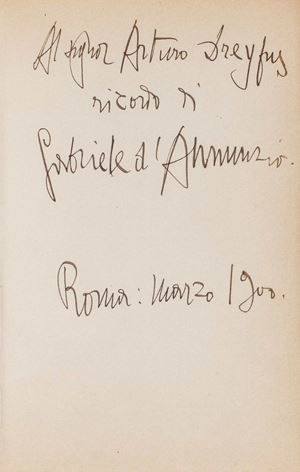 Al signor Arturo Dreyfus
ricordo di
Gabriele d'Annunzio.
Roma: marzo 1900.